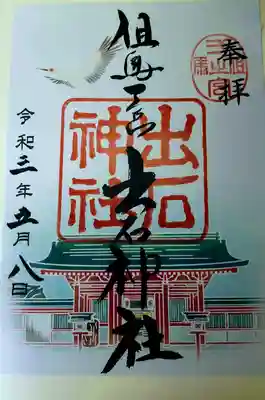 奉拝
但馬一宮出石神社
出石
神社
令和三年五月八日